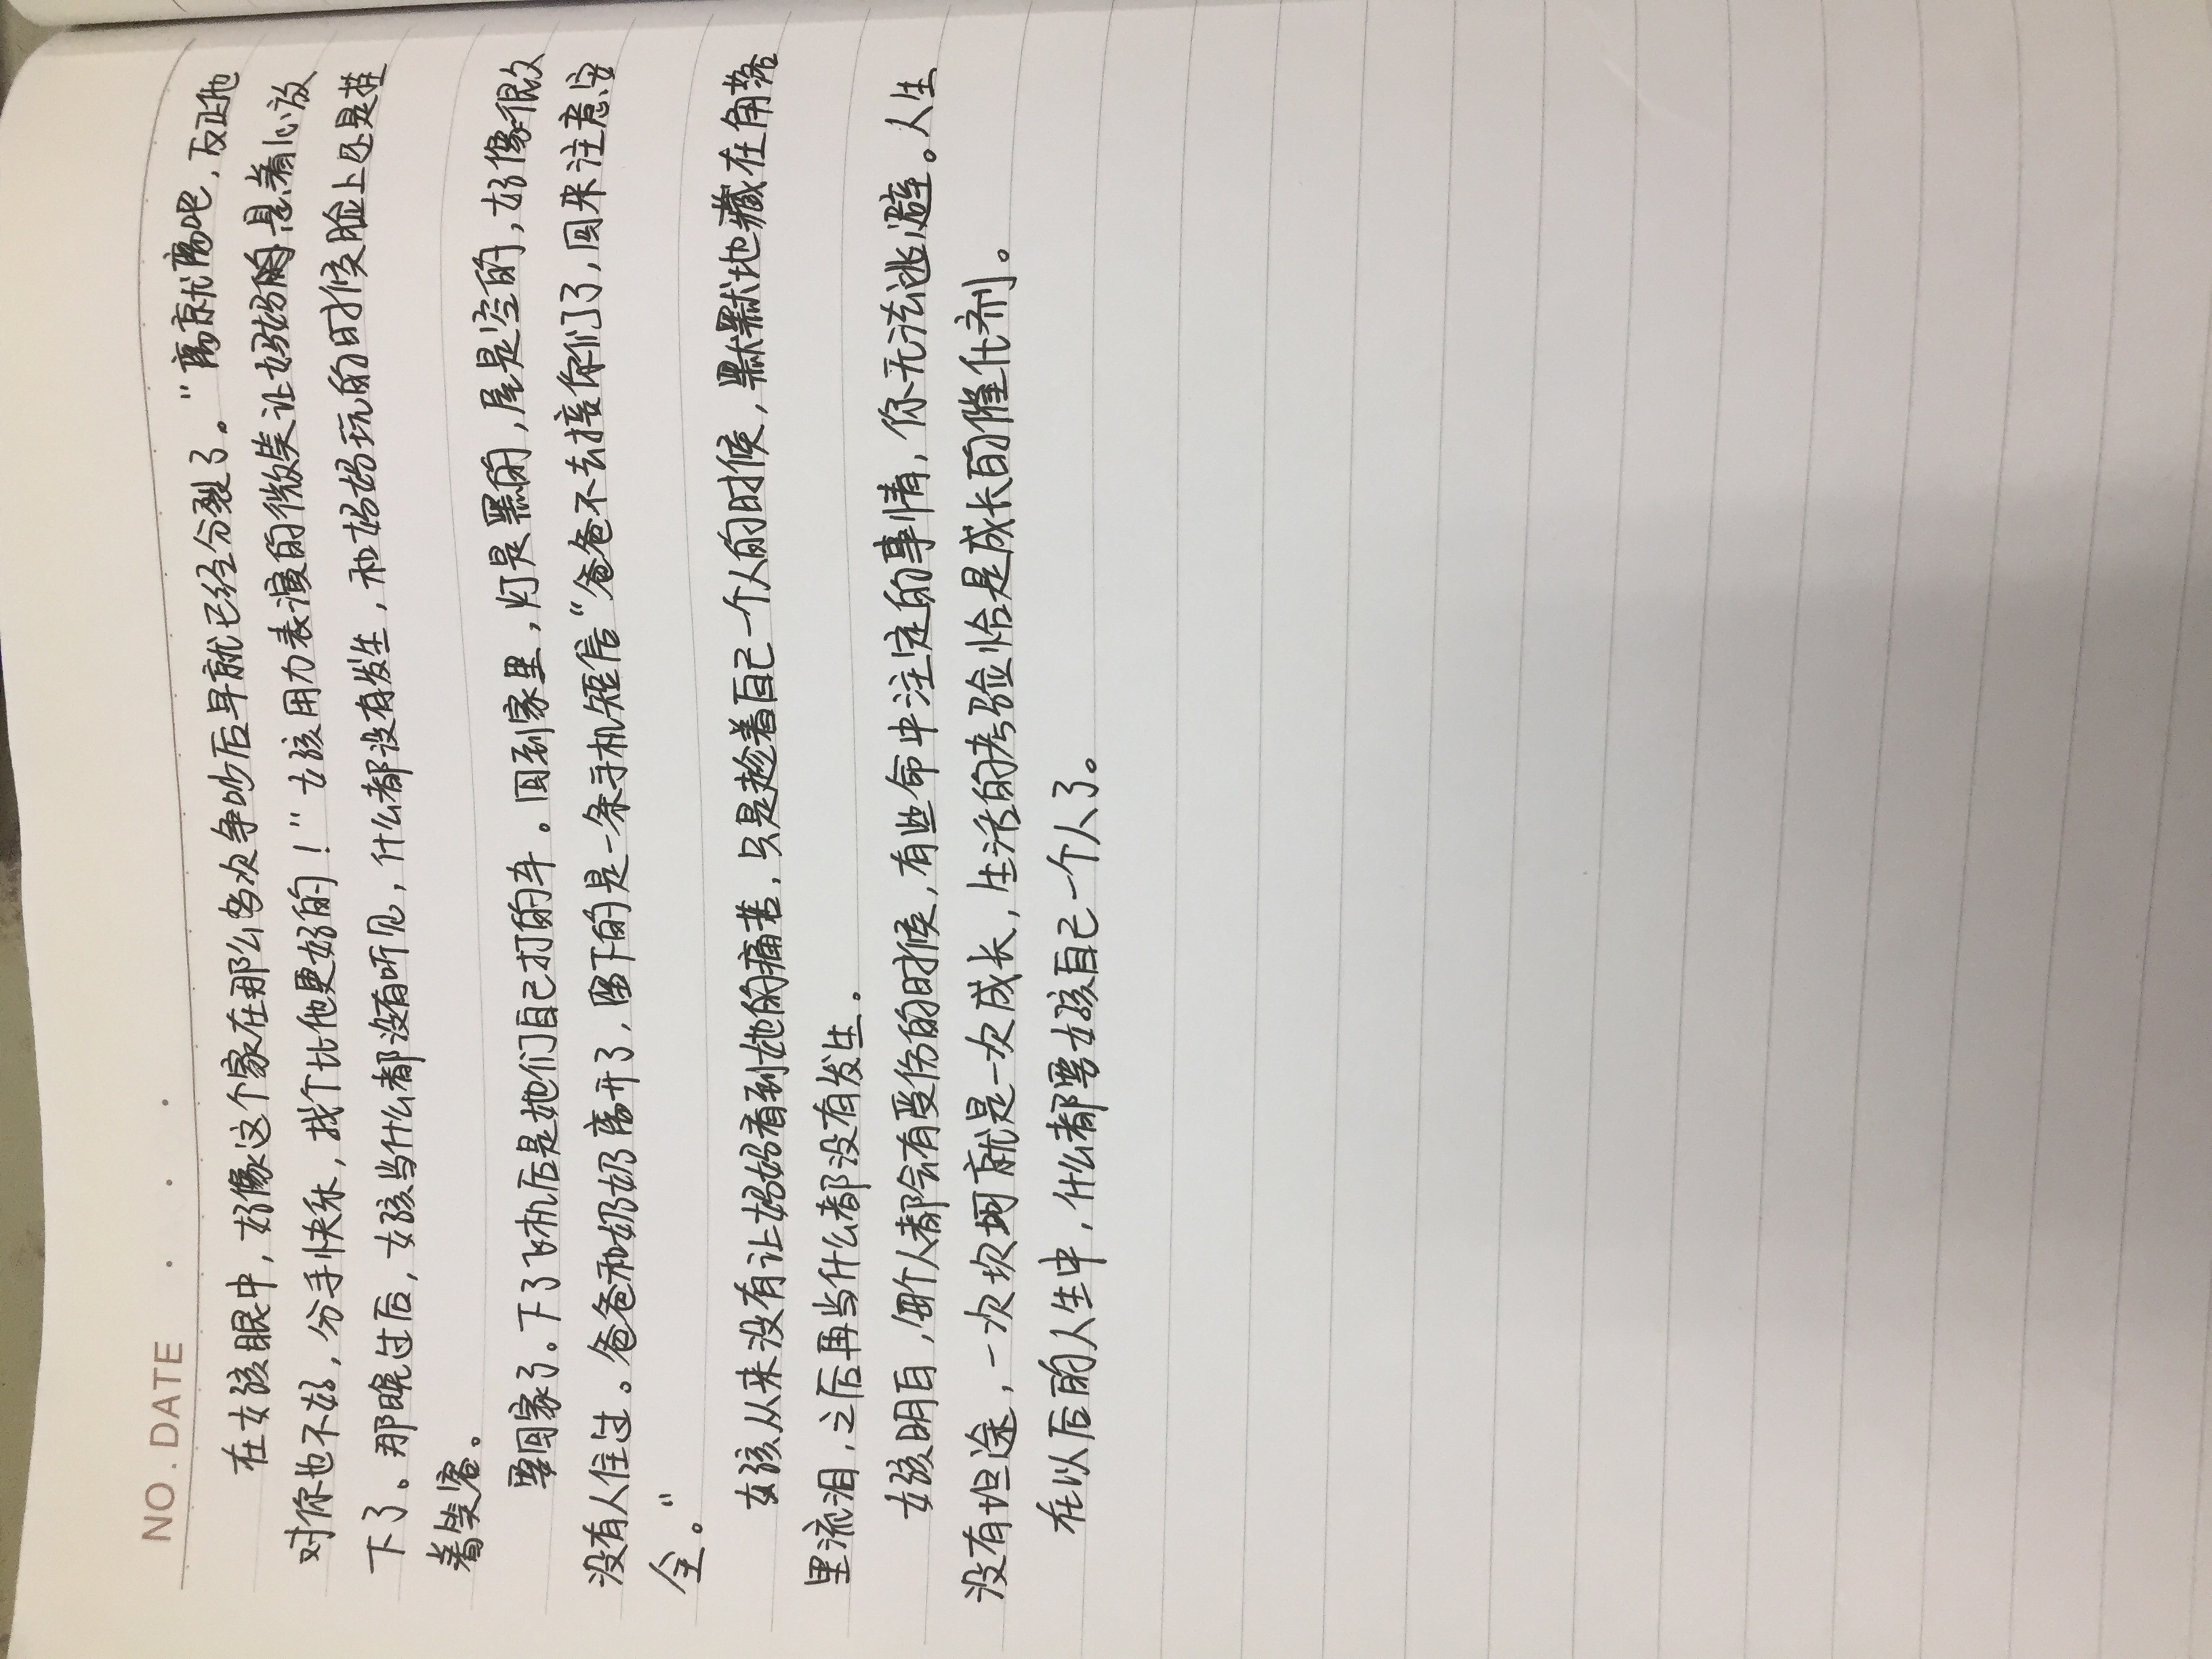 NO. DATE
在女孩眼中，好像这个家在那么多次争吵后早就已经分裂了。“离就离吧，反正他
对你也不好，分手快乐，找个比他更好的！”女孩用力表演的微笑让妈妈的悬着心放
下了。那晚过后，女孩当什么都没有听见，什么都没有发生，和妈妈玩的时候脸上还是挂
着笑容。
要回家了。下了飞机后是她们自己打的车。回到家里，灯是黑的，屋是空的，好像很久
没有人住过。爸爸和奶奶离开了，留下的是一条手机短信“爸爸不去接你们了，回来注意安
全。”
女孩从来没有让妈妈看到她的痛苦，只是趁着自己一个人的时候，默默地藏在角落
里流泪，之后再当什么都没有发生。
女孩明白，每个人都会有受伤的时候，有些命中注定的事情，你无法逃避。人生
没有坦途，一次坎坷就是一次成长，生活的考验恰是成长的催化剂。
在以后的人生中，什么都要女孩自己一个人了。